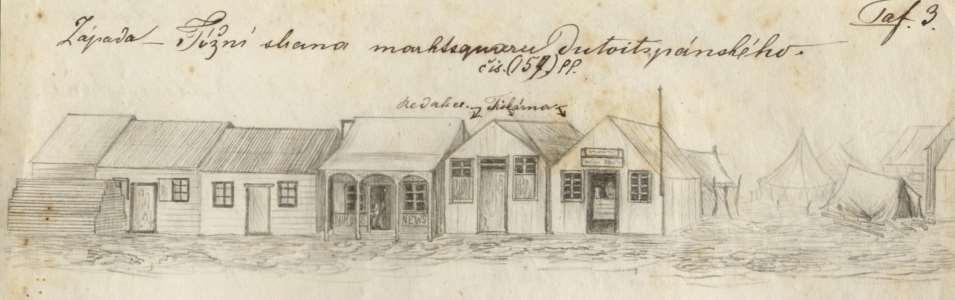 Taf. 3.
Západo – Jižní strana marktsquaru Dutoitspánského.
čís. (157.) PP.
Redakce. Tiskárna
NEWS